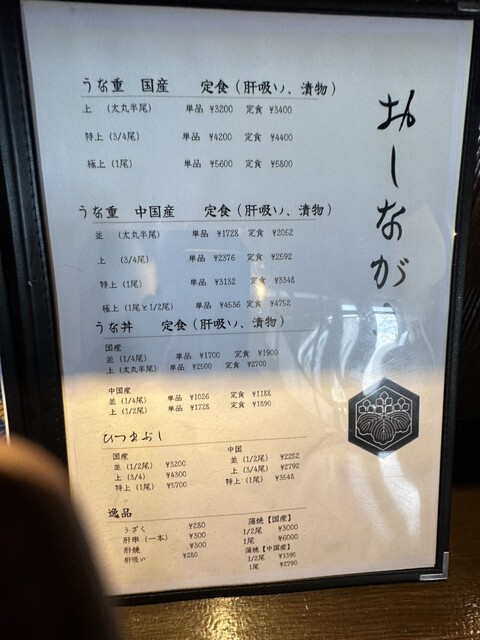 おしながき
うな重 国産 定食(肝吸い、漬物)
上 (太丸半尾) 単品 ¥3200 定食 ¥3400
特上(3/4尾) 単品 ¥4200 定食 ¥4400
極上(1尾) 単品 ¥5600 定食 ¥5800
うな重 中国産 定食(肝吸い、漬物)
並 (太丸半尾) 単品 ¥1728 定食 ¥2052
上 (3/4尾) 単品 ¥2376 定食 ¥2592
特上(1尾) 単品 ¥3132 定食 ¥3348
極上(1尾と1/2尾) 単品 ¥4536 定食 ¥4752
うな丼 定食(肝吸い、漬物)
国産
並(1/4尾) 単品 ¥1700 定食 ¥1900
上(太丸半尾) 単品 ¥2500 定食 ¥2700
中国産
並(1/4尾) 単品 ¥1026 定食 ¥1188
上(1/2尾) 単品 ¥1728 定食 ¥1890
ひつまぶし
国産
並(1/2尾) ¥3200
上(3/4) ¥4300
特上(1尾) ¥5700
中国
並(1/2尾) ¥2252
上(3/4尾) ¥2792
特上(1尾) ¥3548
逸品
うざく ¥280
肝串(一本) ¥300
肝焼 ¥300
肝吸い ¥280
蒲焼【国産】
1/2尾 ¥3000
1尾 ¥6000
蒲焼【中国産】
1/2尾 ¥1395
1尾 ¥2790